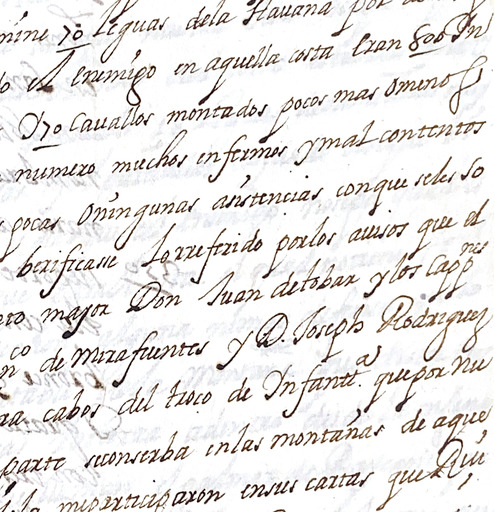 mine 70 leguas dela Havana por
el Enemigo en aquella costa Eran 800 Yn
Y 70 Cavallos montados pocos mas omenos
numero muchos enfermos ymal contentos
pocas Oningunas asistencias conque seles so
berificasse Lo rreferido porlos auisos que el
mayor Don Iuan detobar y los Capp.nes
co de Mirafuentes y D. Joseph Rodriguez
cabos del troço de Infantt.a que por nu
parte seconserba enlas montañas de aque
la mipartiçiparon ensus cartas que